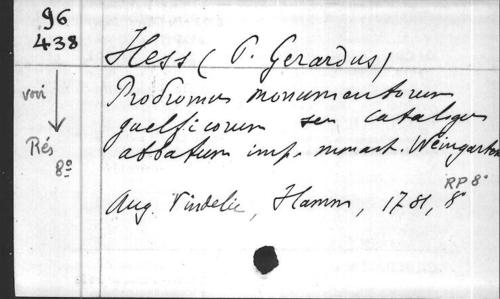 96
438
Hess (P. Gerardus)
voir
Prodromus monumentorum
guelficorum seu catalogus
Rés
8º
abbatum imp. monast. Weingarten
RP 8º
Aug. Vindelic, Hamm, 1781, 8º